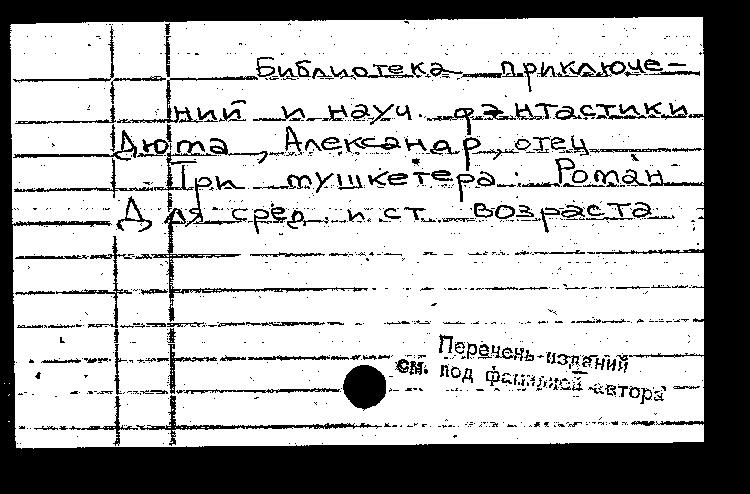 Библиотека приключе-
ний и науч. фантастики
Дюма, Александр, отец
Три мушкетера. Роман
Для сред. и ст. возраста
Перечень изданий
см. под фамилией автора